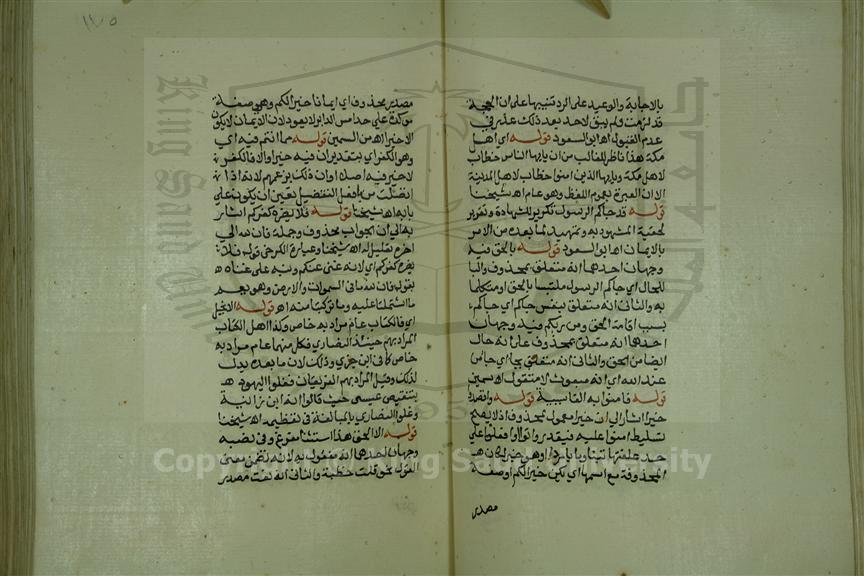 بالاجابة والوعيد على الرد تنبيها على ان الحجة
قد لزمت ولم يبق لاحد بعد ذلك عذر في
عدم القبول اه ابو السعود قوله اي اهل
مكة هذا ناظر للغالب من ان يا ايها الناس خطاب
لاهل مكة ويا ايها الذين امنوا خطاب لاهل المدينة
الا ان العبرة بعموم اللفظ وهو عام اه شيخنا
قوله قد جاكم الرسول تكرير للشهادة وتقرير
لحقية المشهود به وتمهيد لما بعده من الامر
بالايمان اه ابو السعود قوله بالحق فيه
وجهان احدهما انه متعلق بمحذوف والبا
للحال اي جاكم الرسول ملتبسا بالحق او متكلما
به والثاني انه متعلق بنفس جاكم اي جاكم
بسبب اقامة الحق ومن ربكم فيه وجهان
احدهما انه متعلق بمحذوف على انه حال
ايضا من الحق والثاني انه متعلق بجا اي جا من
عند الله اي انه مبعوث لا متقول اه سمين
قوله فامنوا به الفا سببية قوله واقصدوا
خيرا اشار الى ان خيرا معمول لمحذوف اذ لا يصح
تسليط امنوا عليه فيقدر واتوا او فعلوا على
حد علفتها تبنا وما باردا او هو خبر لكان
المحذوفة مع اسمها اي يكن خيرا لكم او صفة
مصدر
١١٠٥
مصدر محذوف اي ايمانا خيرا لكم وهي صفة
موكدة على حد امس الدابر لا يعود لان الايمان لا يكون
الا خيرا اه من السمين قوله مما انتم فيه اي
وهو الكفر اي بتقدير ان فيه خيرا والا فالكفر
لا خير فيه اصلا او ان ذلك بزعمهم لانه اذا
اتصلت من بافعل التفضيل تعين ان يكون على
بابه اه شيخنا قوله فلا يضره كفركم اشار
به الى ان الجواب محذوف وجملة فان لله الى
اخره تعليل له اه شيخنا وعبارة الكرخي قوله فلا
يضره كفركم اي لانه غني عنكم ونبه على غناه
بقوله فان لله ما في السموات والارض وهو يعم
ما اشتملتا عليه وما تركبتا منه اه قوله الانجيل
اي فالكتاب عام مراد به خاص وكذا اهل الكتاب
المراد بهم حينئذ النصارى فكل منهما عام مراد به
خاص كما في ابن جزي وذلك لان ما بعده يدل
لذلك وقيل المراد بهم الفريقان فغلوا اليهود
بتنقيص عيسى حيث قالوا انه ابن زانية
وغلوا النصارى بالمبالغة في تعظيمه اه شيخنا
قوله الا الحق هذا استثنا مفرغ وفي نصبه
وجهان احدهما انه مفعول به لانه تضمن معنى
القول نحو قلت خطبة والثاني انه نعت مصدر
Copyright © King Saud University
King Saud University
جامعة الملك سعود